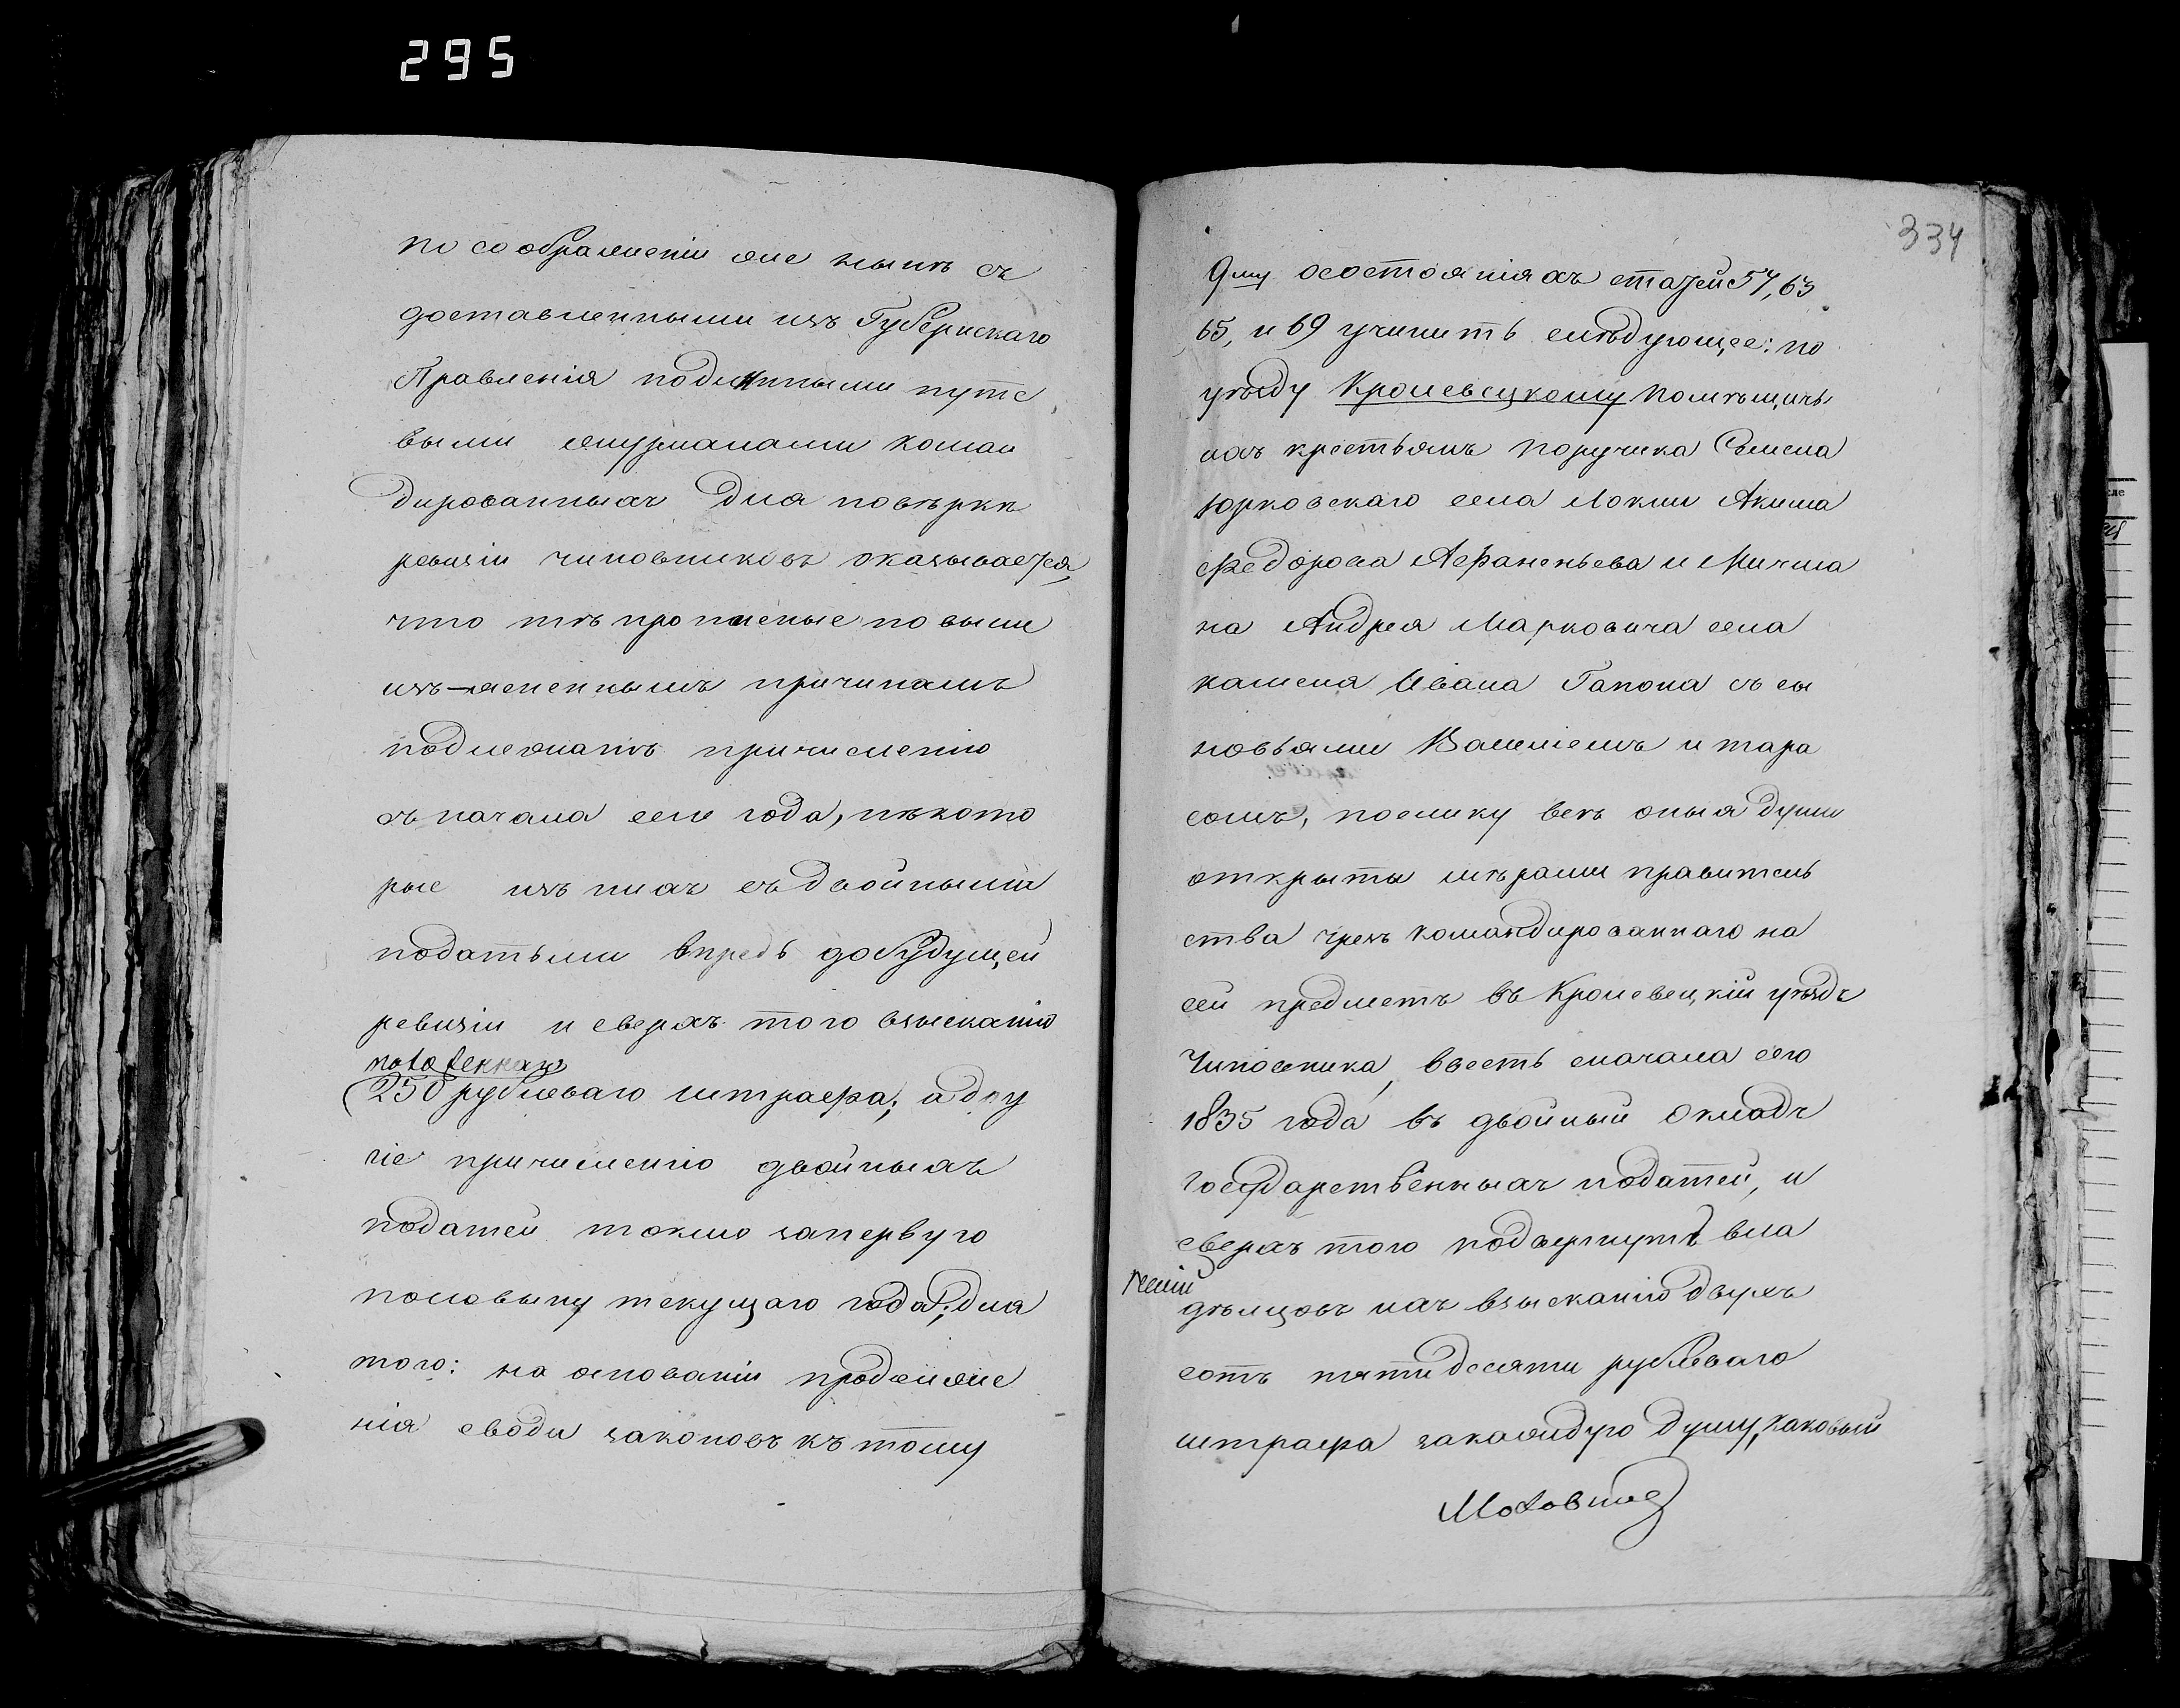 295
по соображеніи же ныне съ
доставленными изъ Губернскаго
Правленія подлинными путе
выми журналами коман
дированныхъ для поверки
ревизіи чиновниковъ оказывается,
что те прописные по выше
изъ-ясненнымъ причинамъ
подлежатъ причисленію
съ начала сего года, некото
рые изъ нихъ съ двойными
податьми впредь до будущей
ревизіи и сверхъ того взысканію
250 рублеваго штрафа; а дру
гіе причисленію двойныхъ
податей токмо за первую
половыну текущаго года; для
того: на основаніи продолже
нія свода законовъ къ тому
334
9му о состояніяхъ статей 57, 63
65, и 69 учинить следующее: по
уезду Кролевецкому помещичь
ихъ крестьянъ поручика Семена
Юрковскаго села Локни Акима
Федорова Афаненьева и Мичма
на Андрея Марковича села
каменя Ивана Гапона съ сы
новьями Василіемъ и тара
сомъ, поелику все оныя души
открыты мерами правитель
ства чрезъ командированнаго на
сей предметъ въ Кролевецкій уездъ
Чиновника, ввесть сначала сего
1835 года въ двойный окладъ
государственныхъ податей, и
сверхъ того подвергнуть вла
дельцовъ ихъ взысканію двухъ
сотъ пятидесяти рублеваго
штрафа за каждую душу, каковый